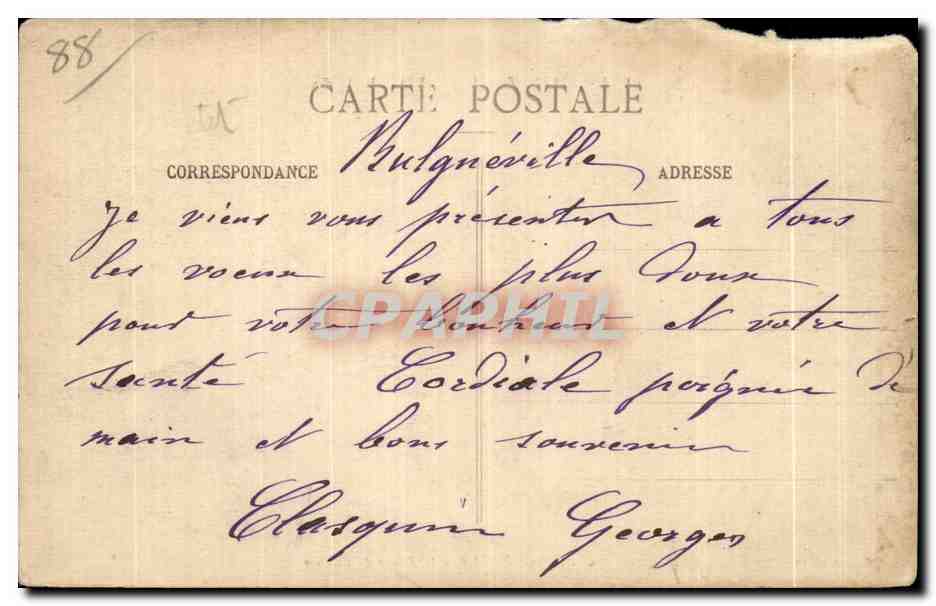 88/
CARTE POSTALE
CORRESPONDANCE Bulgnéville ADRESSE
Je viens vous présenter a tous
les voeux les plus doux
pour votre bonheur et votre
santé Cordiale poignée de
main et bons souvenir
Clasquin Georges
CPAPHIL